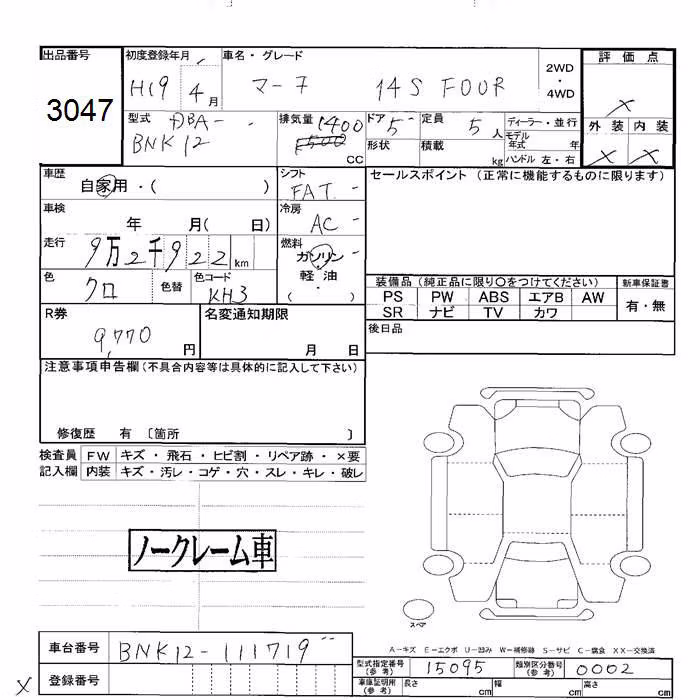 出品番号
3047
初度登録年月
H19 年 4 月
車名・グレード
マーチ 14S FOUR
2WD
・
4WD
評価点
X
外装 内装
X X
型式 DBA-
BNK12
排気量 1400
1500
CC
ドア 5
形状
定員 5 人
積載 kg
ディーラー・並行
モデル
年式 年
ハンドル 左・右
車歴
自家用・( )
シフト
FAT
セールスポイント (正常に機能するものに限ります)
車検
年 月( 日)
冷房
AC
走行
9万2千922 km
燃料
ガソリン
軽油
( )
色
クロ
色替
色コード
KH3
装備品 (純正品に限り○をつけてください)
新車保証書
PS PW ABS エアB AW
SR ナビ TV カワ
有・無
R券
9,770 円
名変通知期限
月 日
後日品
注意事項申告欄 (不具合内容等は具体的に記入して下さい)
修復歴 有 〔箇所 〕
検査員 FW キズ・飛石・ヒビ割・リペア跡・×要
記入欄 内装 キズ・汚レ・コゲ・穴・スレ・キレ・破レ
ノークレーム車
スペア
A−キズ E−エクボ U−凹み W−補修跡 S−サビ C−腐食 XX−交換済
車台番号 BNK12-111719
型式指定番号
(参考)
15095
類別区分番号
(参考)
0002
X
登録番号
車庫証明用
(参考)
長さ cm 幅 cm 高さ cm